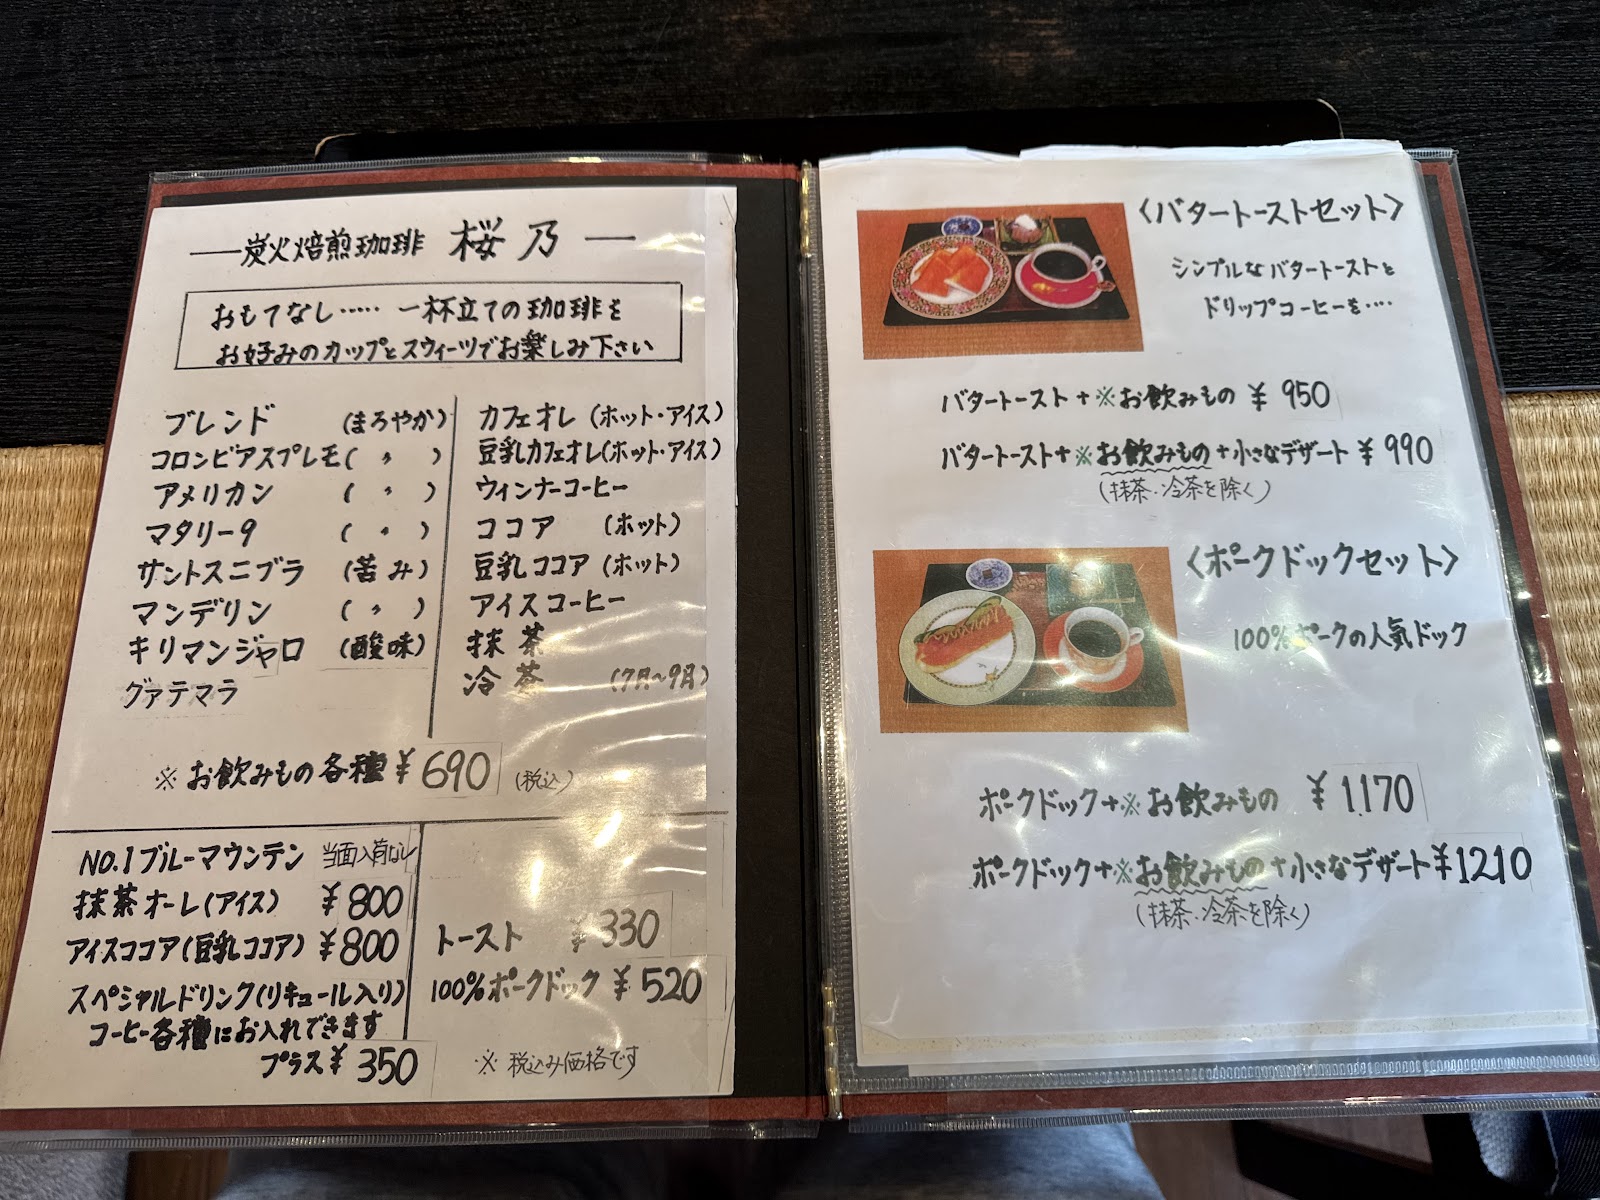 ―炭火焙煎珈琲 桜乃―
おもてなし…… 一杯立ての珈琲を
お好みのカップとスウィーツでお楽しみ下さい
ブレンド (まろやか)
コロンビアスプレモ( 〃 )
アメリカン ( 〃 )
マタリー9 ( 〃 )
サントスニブラ (苦み)
マンデリン ( 〃 )
キリマンジャロ (酸味)
グァテマラ
カフェオレ (ホット・アイス)
豆乳カフェオレ(ホット・アイス)
ウィンナーコーヒー
ココア (ホット)
豆乳ココア (ホット)
アイスコーヒー
抹茶
冷茶 (7月~9月)
※ お飲みもの各種 ¥690 (税込)
NO.1 ブルーマウンテン 当面入荷なし
抹茶オーレ(アイス) ¥800
アイスココア(豆乳ココア) ¥800
スペシャルドリンク(リキュール入り)
コーヒー各種にお入れできます
プラス¥350
トースト ¥330
100%ポークドック ¥520
※ 税込み価格です
〈バタートーストセット〉
シンプルなバタートーストと
ドリップコーヒーを‥‥
バタートースト+※お飲みもの ¥950
バタートースト+※お飲みもの+小さなデザート ¥990
(抹茶・冷茶を除く)
〈ポークドックセット〉
100%ポークの人気ドック
ポークドック+※お飲みもの ¥1.170
ポークドック+※お飲みもの+小さなデザート¥1210
(抹茶・冷茶を除く)